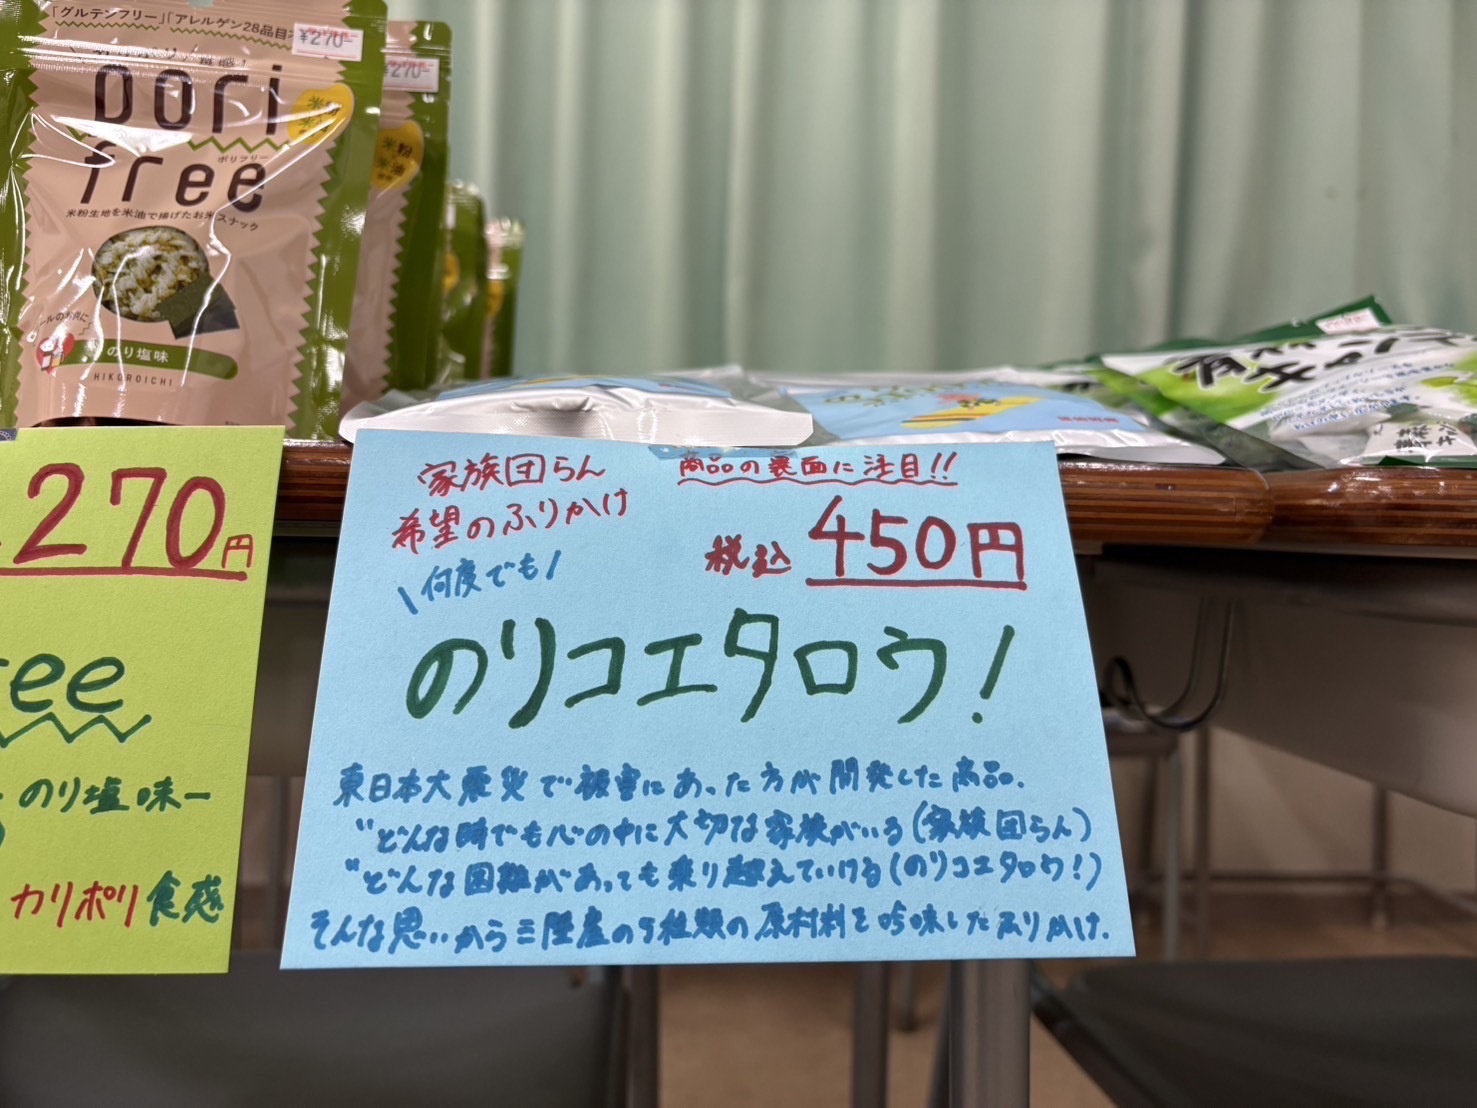 「グルテンフリー」「アレルゲン28品目
¥270-
pori
free
ポリフリー
米粉生地を米油で揚げたお米スナック
のり塩味
HIKOROICHI
¥270-
米粉
米油
270円
ee
のり塩味ー
カリポリ食感
家族団らん
希望のふりかけ
商品の裏面に注目!!
税込 450円
\何度でも/
のリコエタロウ!
東日本大震災で被害にあった方が開発した商品.
"どんな時でも心の中に大切な家族がいる(家族団らん)
"どんな困難があっても乗り越えていける(のリコエタロウ!)
そんな思いから三陸産の9種類の原材料を吟味したふりかけ.